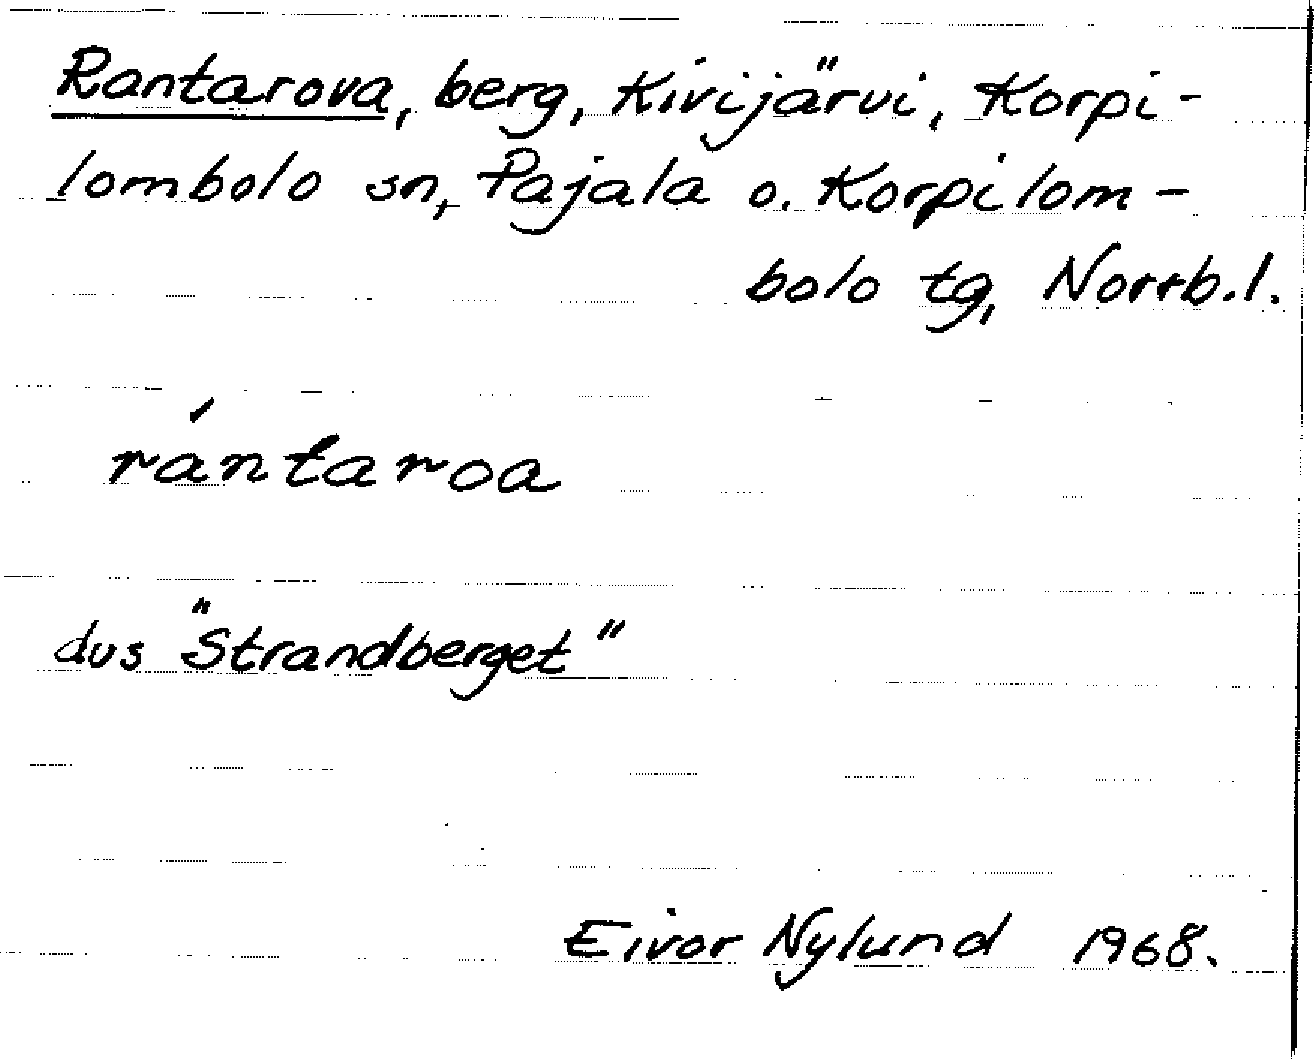 Rantarova, berg, Kivijärvi, Korpi-
lombolo sn, Pajala o. Korpilom-
bolo tg, Norrb.l.
rántaroa
dvs "Strandberget"
Eivor Nylund 1968.